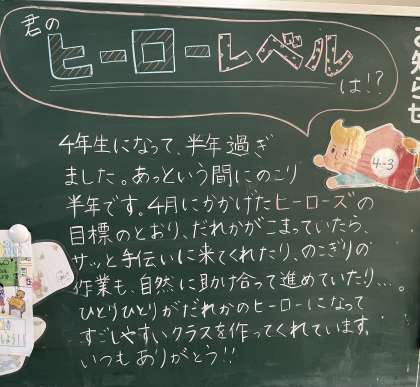 君の
ヒーローレベル
は!?
お知らせ
4-3
4年生になって、半年過ぎ
ました。あっという間にのこり
半年です。4月にかかげたヒーローズの
目標のとおり、だれかがこまっていたら、
サッと手伝いに来てくれたり、のこぎりの
作業も、自然に助け合って進めていたり…。
ひとりひとりがだれかのヒーローになって
すごしやすいクラスを作ってくれています。
いつもありがとう!!